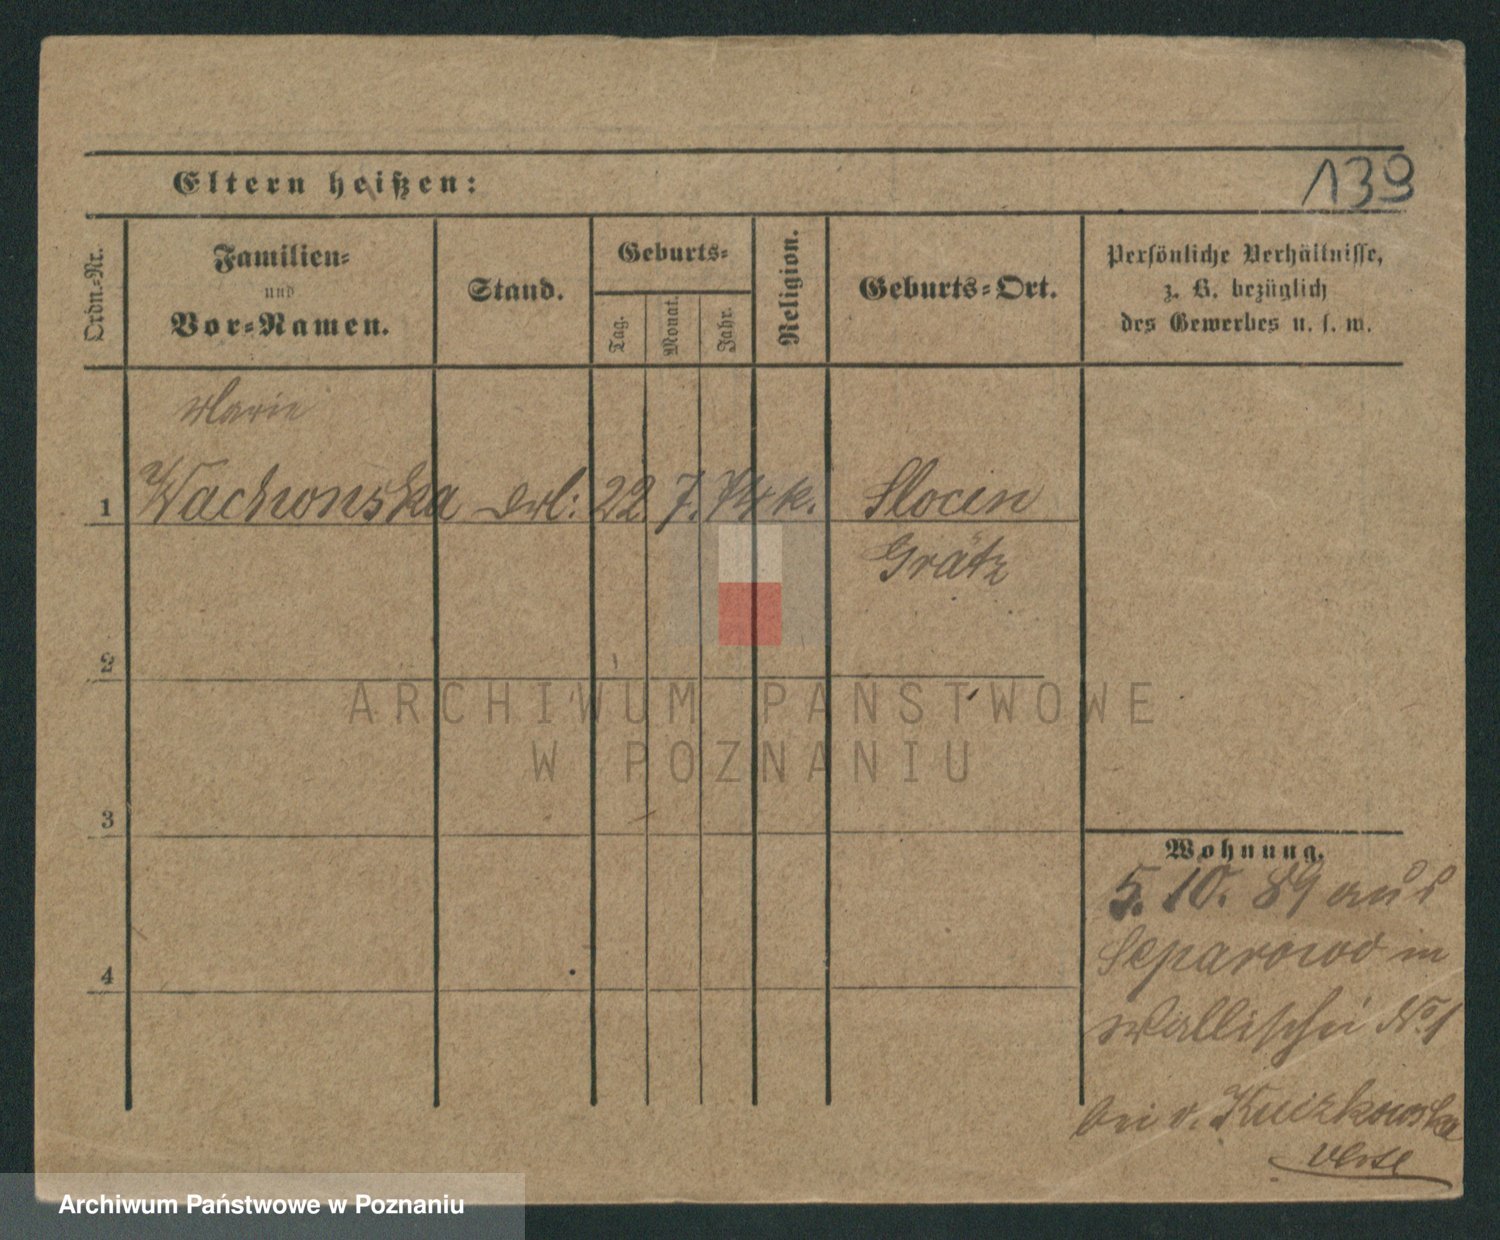 139
Eltern heißen:
Ordn.-Nr.
Familien-
und
Vor-Namen.
Stand.
Geburts-
Tag.
Monat.
Jahr.
Religion.
Geburts-Ort.
Persönliche Verhältnisse,
z. B. bezüglich
des Gewerbes u. s. w.
Marie
1 Wachowska 22. 7. 74 k. Slocin
Grätz
2
3
4
Wohnung.
5. 10. 89 aus
Separowo in
Wallischei No. 1
bei v.
ARCHIWUM PAŃSTWOWE
W POZNANIU
Archiwum Państwowe w Poznaniu